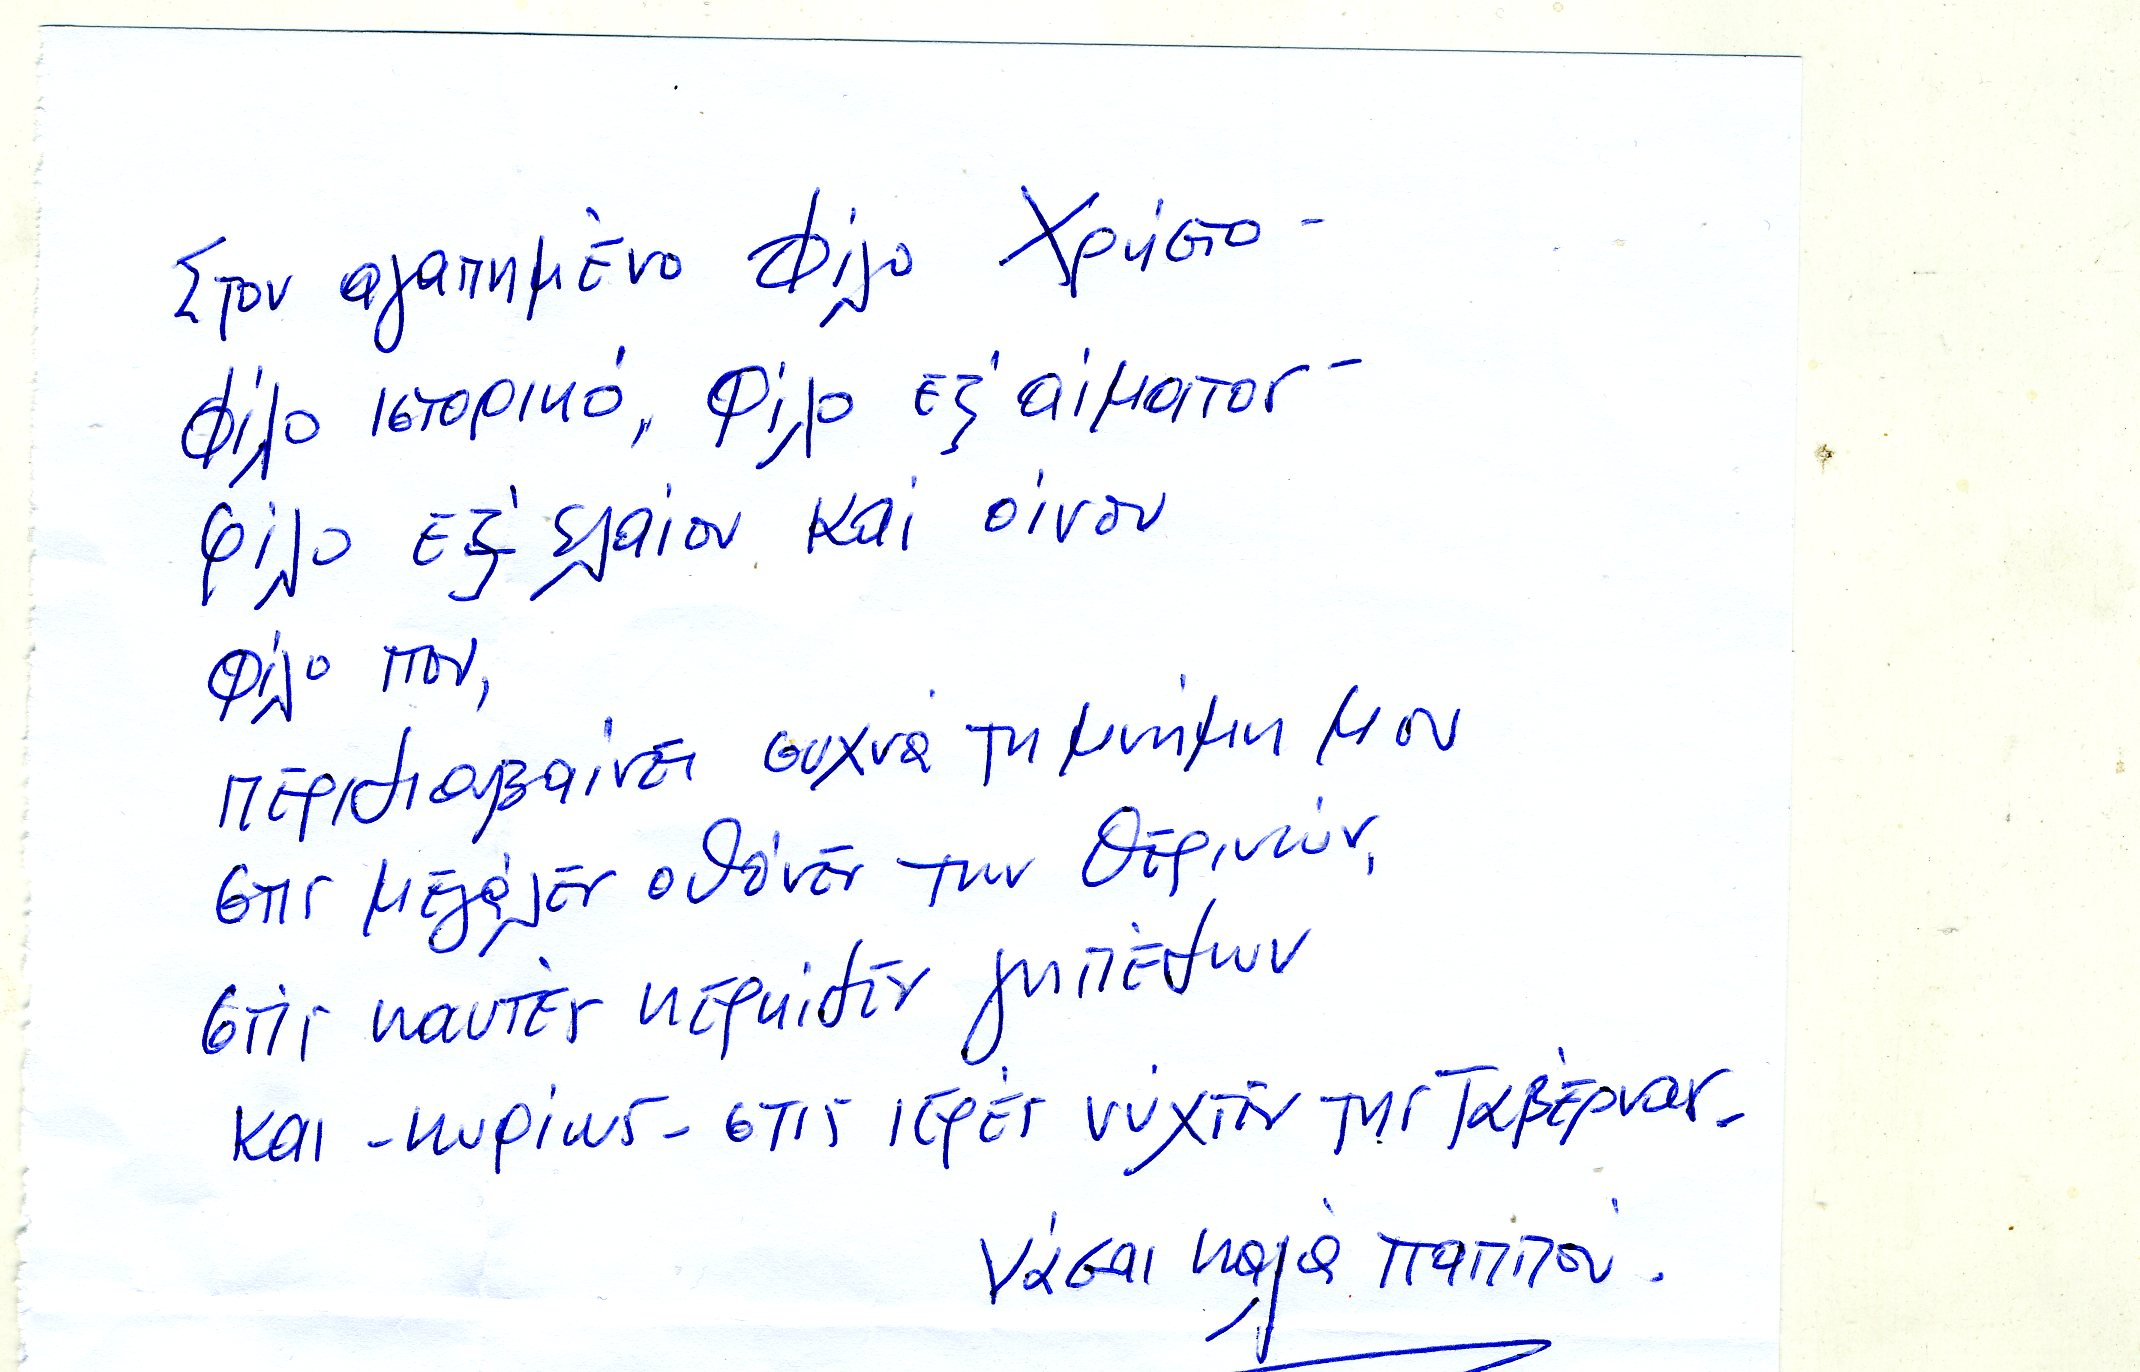 Στον αγαπημένο Φίλο Χρήστο -
Φίλο ιστορικό, Φίλο εξ' αίματος -
Φίλο εξ' ελαίου και οίνου
Φίλο που,
περιδιαβαίνει συχνά τη μνήμη μου
στις μεγάλες οθόνες των θερινών,
στις καυτές κερκίδες γηπέδων
και - κυρίως - στις ιερές νύχτες της Ταβέρνας.
Νάσαι καλά παππού.